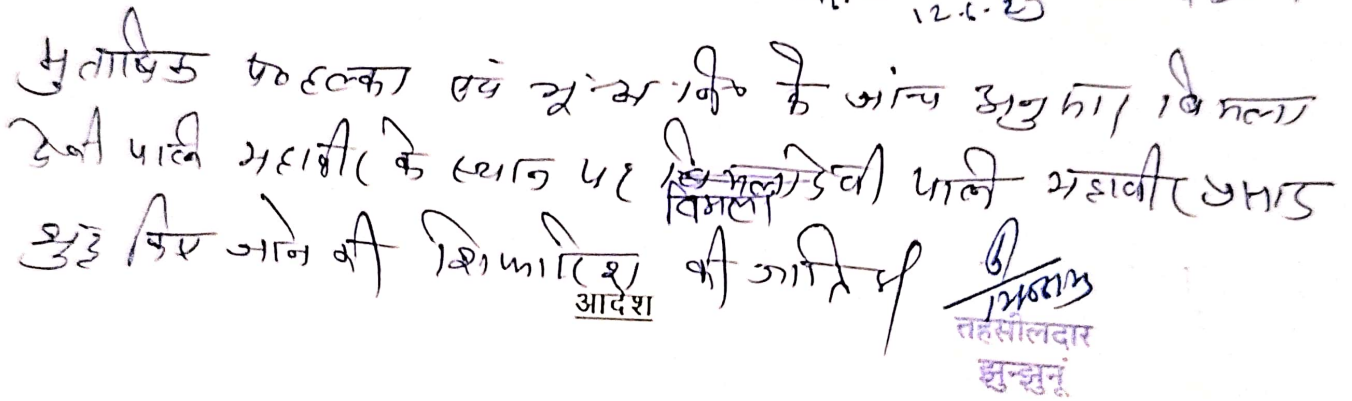 12.6.25
मुताबिक प०हल्का एवं भू०अ०नि० के जांच अनुसार विमला
देवी पत्नि महावीर के स्थान पर विमला देवी पत्नि महावीर प्रसाद
विमला
शुद्ध किए जाने की शिफारिश की जाति है
आदेश
तहसीलदार
झुन्झुनूं